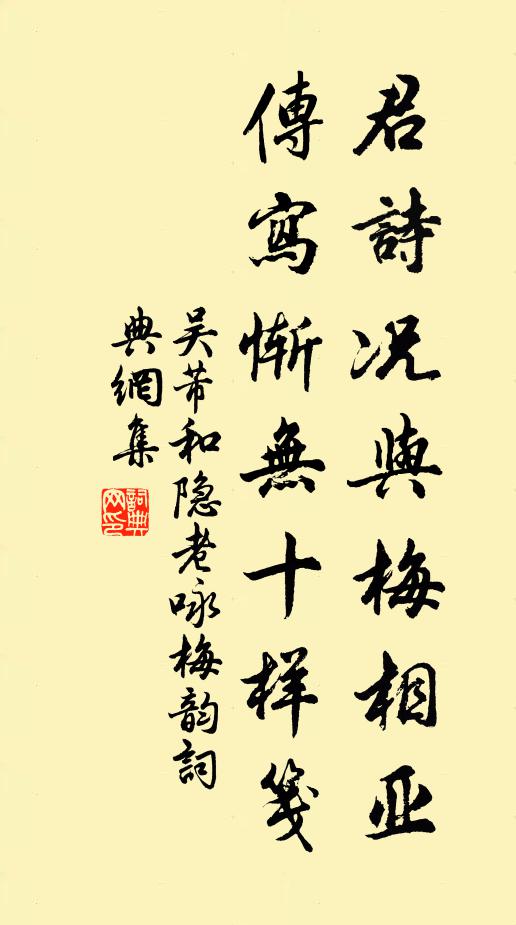 君詩况與梅相亚
傳寫慚無十样箋
吴芾和隐老咏梅韵詞
典網集
詞典
网印